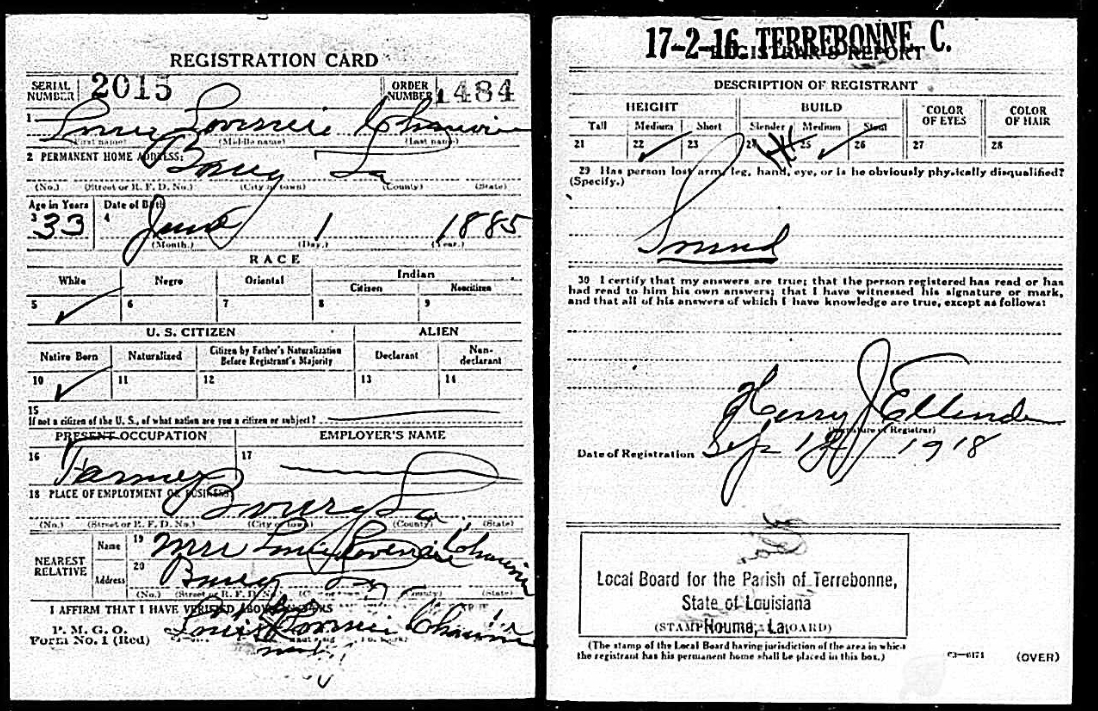 REGISTRATION CARD
SERIAL NUMBER 2015 ORDER NUMBER 1484
1 Louis Lovinci Chauvin
(First name) (Middle name) (Last name)
2 PERMANENT HOME ADDRESS:
Bourg La
(No.) (Street or R. F. D. No.) (City or town) (County) (State)
Age in Years Date of Birth
3 33 4 June 1 1885
(Month.) (Day.) (Year.)
RACE
White Negro Oriental Indian
Citizen Noncitizen
5 6 7 8 9
U. S. CITIZEN ALIEN
Native Born Naturalized Citizen by Father's Naturalization Before Registrant's Majority Declarant Non-declarant
10 11 12 13 14
15
If not a citizen of the U. S., of what nation are you a citizen or subject?
PRESENT OCCUPATION EMPLOYER'S NAME
16 Farmer 17
18 PLACE OF EMPLOYMENT OR BUSINESS:
Bourg La
(No.) (Street or R. F. D. No.) (City or town) (County) (State)
NEAREST RELATIVE Name 19 Mrs Louis Chauvin
Address 20 Bourg La
(No.) (Street or R. F. D. No.) (City or town) (County) (State)
I AFFIRM THAT I HAVE VERIFIED ABOVE
P. M. G. O.
Form No. 1 (Red) Louis Chauvin
mark
17-2-16 TERREBONNE, C.
REGISTRAR'S REPORT
DESCRIPTION OF REGISTRANT
HEIGHT BUILD COLOR OF EYES COLOR OF HAIR
Tall Medium Short Slender Medium Stout
21 22 23 24 25 26 27 28
29 Has person lost arm, leg, hand, eye, or is he obviously physically disqualified?
(Specify.)
Sound
30 I certify that my answers are true; that the person registered has read or has
had read to him his own answers; that I have witnessed his signature or mark,
and that all of his answers of which I have knowledge are true, except as follows:
Henry J Ellender
(Signature of Registrar)
Date of Registration Sep 12 1918
Local Board for the Parish of Terrebonne,
State of Louisiana
Houma, La.
(STAMP OF LOCAL BOARD)
(The stamp of the Local Board having jurisdiction of the area in which
the registrant has his permanent home shall be placed in this box.)
C3—6171 (OVER)